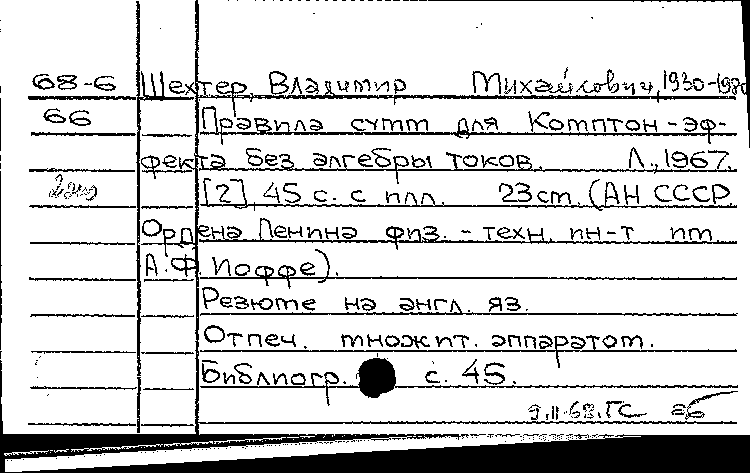 68-6 Шехтер, Владимир Михайлович, 1930-
66 Правила сумм для Комптон-эф-
фекта без алгебры токов. Л., 1967.
[2], 45 с. с илл. 23 cm. (АН СССР.
Ордена Ленина физ.-техн. ин-т им.
А.Ф. Иоффе).
Резюме на англ. яз.
Отпеч. множит. аппаратом.
Библиогр. с. 45.
9.II.68. ГС